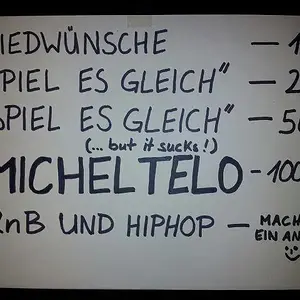 IEDWÜNSCHE — 1
SPIEL ES GLEICH" — 2
SPIEL ES GLEICH" — 50
(... but it sucks!)
MICHEL TELO - 100
RnB UND HIPHOP — MACH
EIN AN